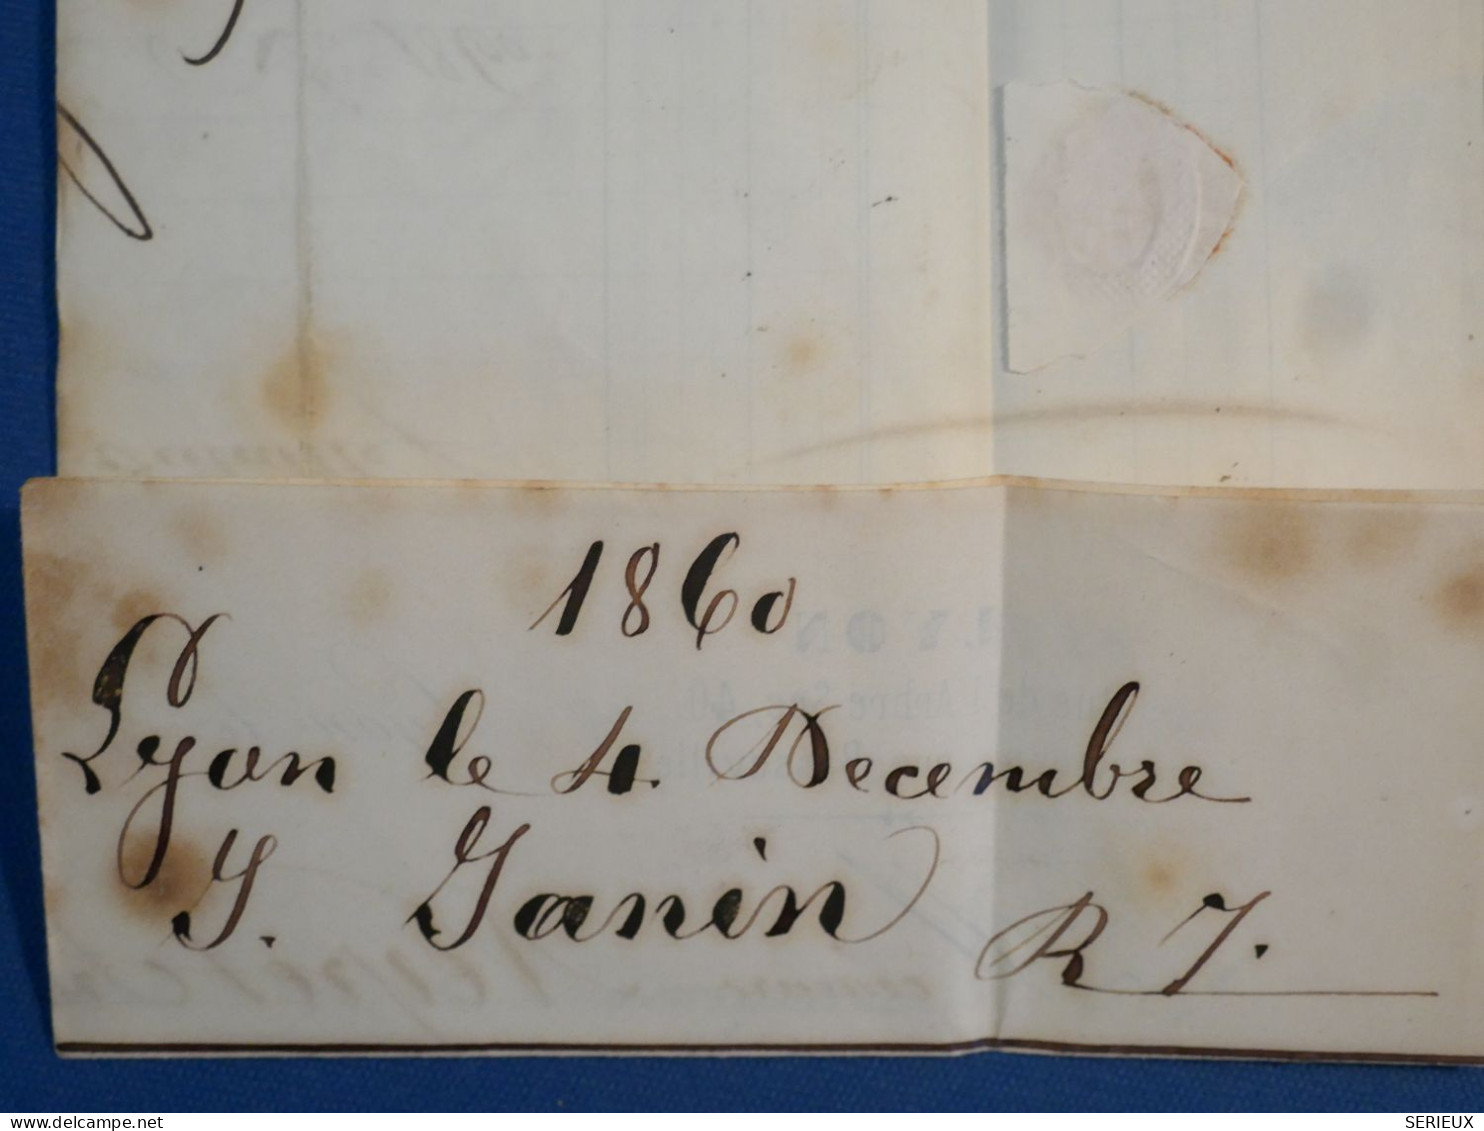 1860
Lyon le 4. Decembre
J. Janin R 7.
delcampe.net
SERIEUX